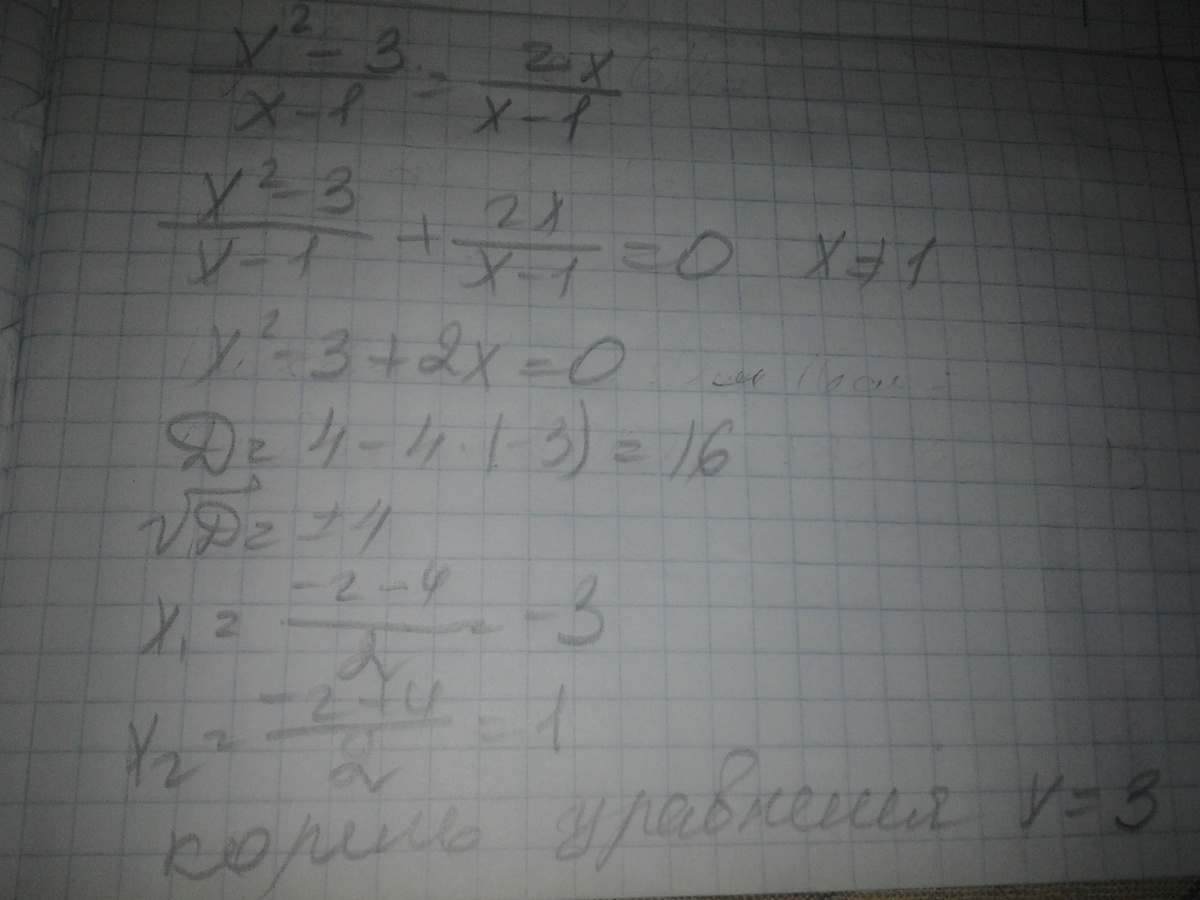 x² - 3 / x - 1 = 2x / x - 1
x² - 3 / x - 1 + 2x / x - 1 = 0 x ≠ 1
x² - 3 + 2x = 0
D = 4 - 4 · (-3) = 16
√D = ± 4
x₁ = -2 - 4 / 2 = -3
x₂ = -2 + 4 / 2 = 1
корень уравнения x = 3